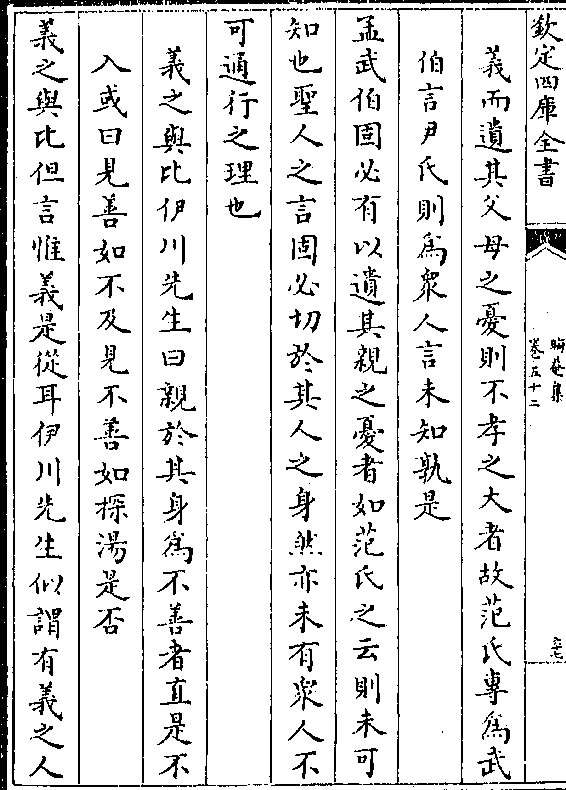 欽定四庫全書
晦菴集
卷五十二
義而遺其父母之憂則不孝之大者故范氏專為武
伯言尹氏則為衆人言未知孰是
孟武伯固必有以遺其親之憂者如范氏之云則未可
知也聖人之言固必切於其人之身然亦未有衆人不
可通行之理也
義之與比伊川先生曰親於其身為不善者直是不
入或曰見善如不及見不善如探湯是否
義之與比但言惟義是從耳伊川先生似謂有義之人